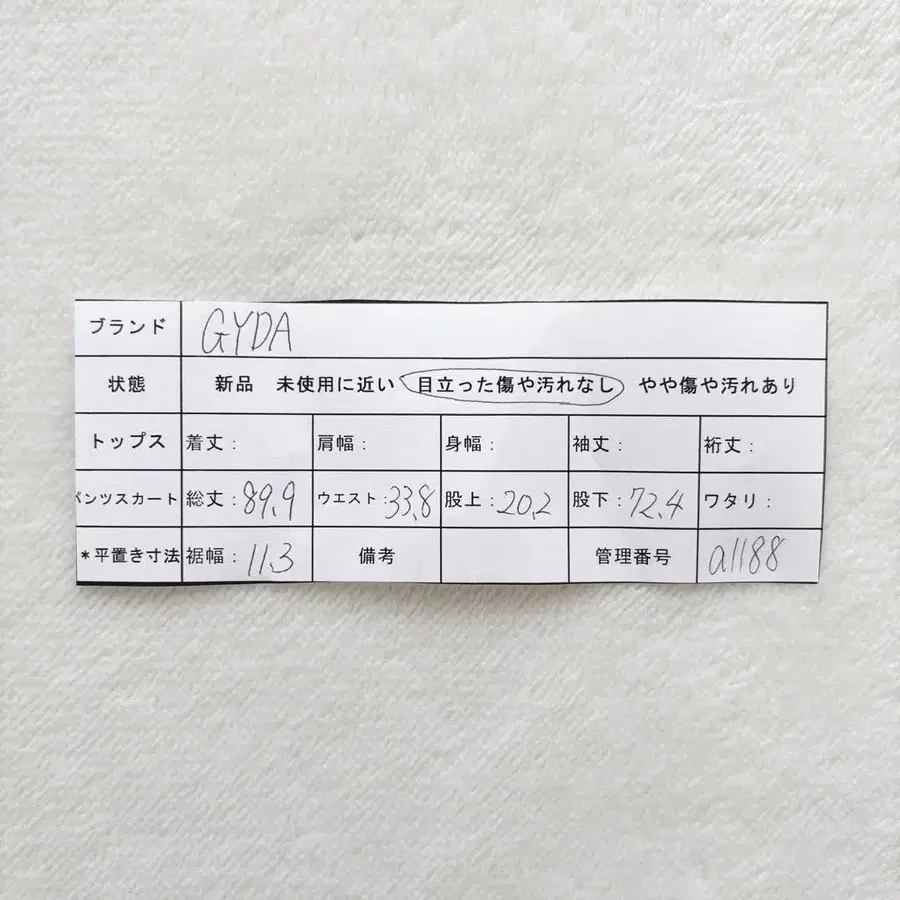 ブランド GYDA
状態 新品 未使用に近い 目立った傷や汚れなし やや傷や汚れあり
トップス 着丈: 肩幅: 身幅: 袖丈: 裄丈:
パンツスカート 総丈:89.9 ウエスト:33.8 股上:20.2 股下:72.4 ワタリ:
*平置き寸法 裾幅:11.3 備考 管理番号 a1188